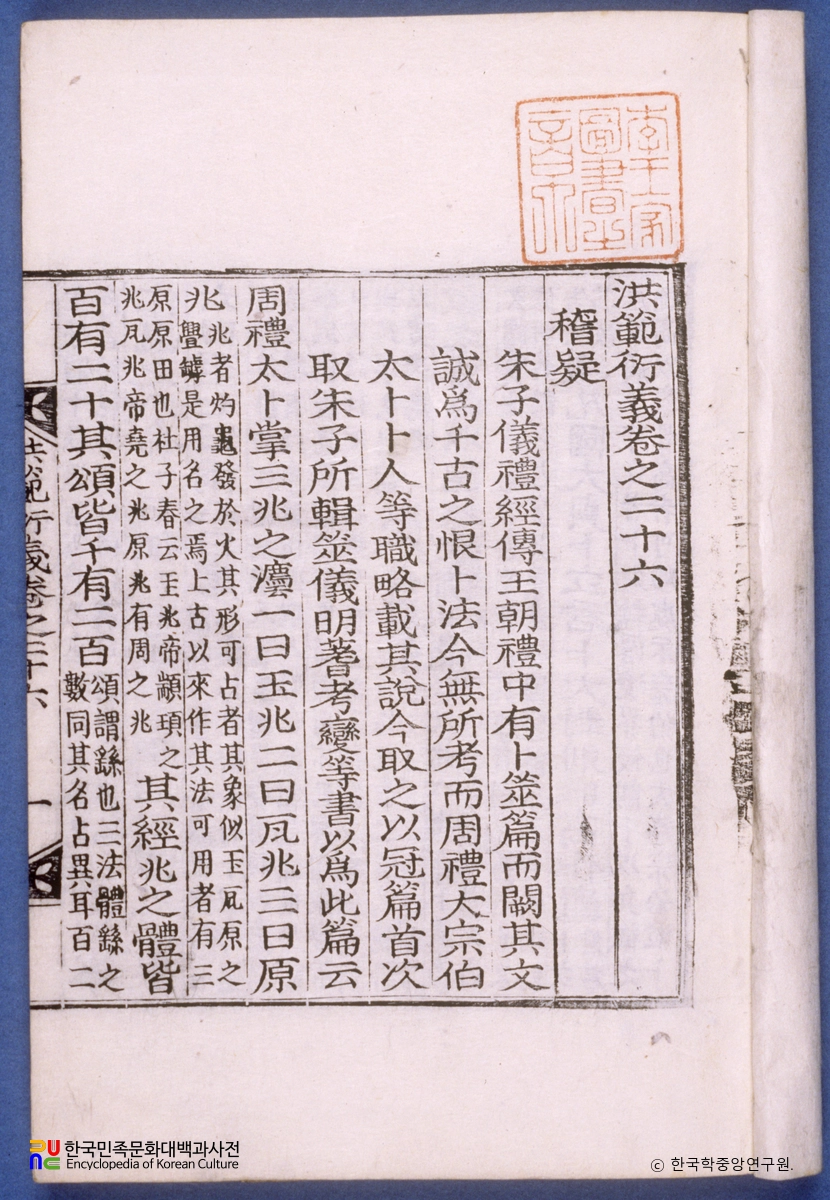 李王家
圖書之
章
洪範衍義卷之二十六
稽疑
朱子儀禮經傳王朝禮中有卜筮篇而闕其文
誠爲千古之恨卜法今無所考而周禮大宗伯
太卜卜人等職略載其說今取之以冠篇首次
取朱子所輯筮儀明蓍考變等書以爲此篇云
周禮太卜掌三兆之灋一曰玉兆二曰瓦兆三曰原
兆
兆者灼龜發於火其形可占者其象似玉瓦原之
舋罅是用名之焉上古以來作其法可用者有三
原原田也杜子春云玉兆帝顓頊之
兆瓦兆帝堯之兆原兆有周之兆
其經兆之體皆
百有二十其頌皆千有二百
頌謂繇也三法體繇之
數同其名占異耳百二
洪範衍義卷之二十六
一
한국민족문화대백과사전
Encyclopedia of Korean Culture
© 한국학중앙연구원.